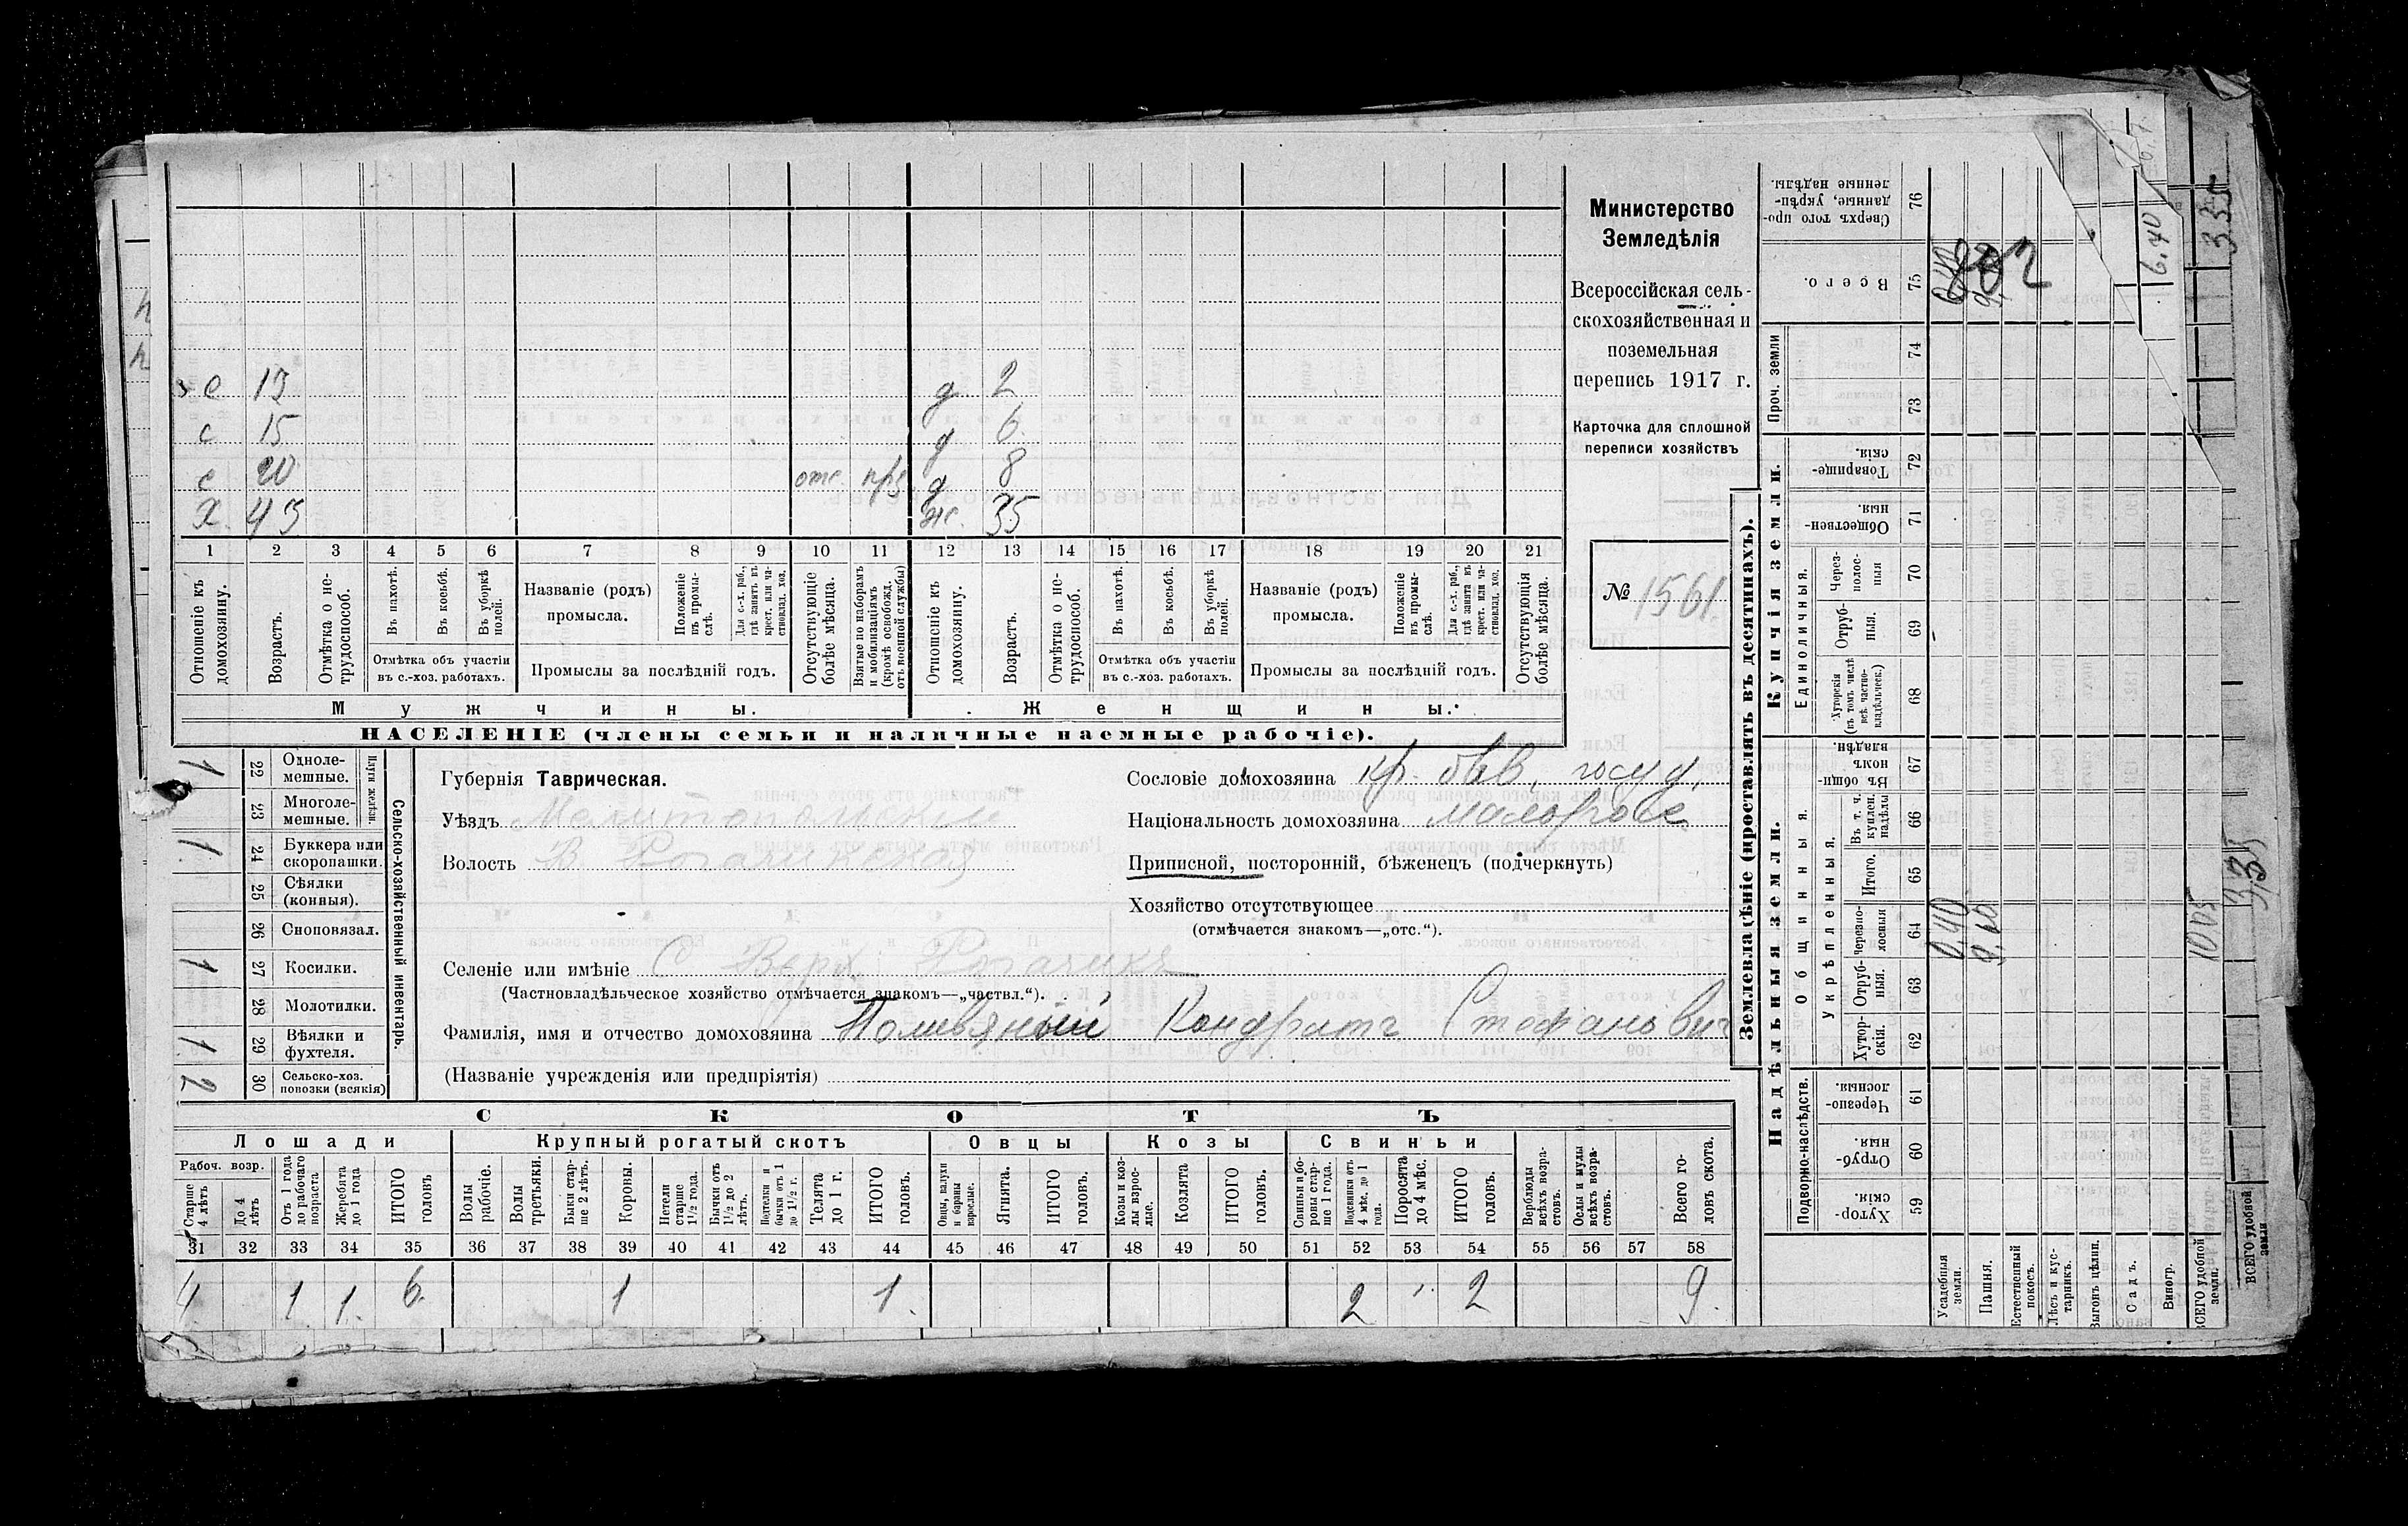 Министерство
Земледѣлія
Всероссійская сель-
скохозяйственная и
поземельная
перепись 1917 г.
Карточка для сплошной
переписи хозяйствъ
№ 1561.
с 13 д 2
с 15 д 6
с 20 отс. д 8
Х. 43 ж. 35
1 2 3 4 5 6 7 8 9 10 11 12 13 14 15 16 17 18 19 20 21
Отношеніе къ домохозяину.
Возрастъ.
Отмѣтка о не-трудоспособ.
Въ пахотѣ.
Въ косьбѣ.
Въ уборкѣ полей.
Отмѣтка объ участіи
въ с.-хоз. работахъ.
Названіе (родъ)
промысла.
Положеніе въ промы-слѣ.
Для с.-х. раб., гдѣ занятъ въ крест. или ча-ствовлад. хоз.
Промыслы за послѣдній годъ.
Отсутствующіе болѣе мѣсяца.
Взятые по наборамъ и мобилизаціямъ (кромѣ освобожд. отъ военной службы)
Отношеніе къ домохозяину.
Возрастъ.
Отмѣтка о не-трудоспособ.
Въ пахотѣ.
Въ косьбѣ.
Въ уборкѣ полей.
Отмѣтка объ участіи
въ с.-хоз. работахъ.
Названіе (родъ)
промысла.
Положеніе въ промы-слѣ.
Для с.-х. раб., гдѣ занята въ крест. или ча-ствовлад. хоз.
Промыслы за послѣдній годъ.
Отсутствующія болѣе мѣсяца.
Мужчины. Женщины.
НАСЕЛЕНІЕ (члены семьи и наличные наемные рабочіе).
Сельско-хозяйственный инвентарь.
Плуги желѣзн.
1 22 Однолемешные.
23 Многолемешные.
1. 24 Буккера или скоропашки.
25 Сѣялки (конныя).
26 Сноповязал.
1 27 Косилки.
28 Молотилки.
1. 29 Вѣялки и фухтеля.
2 30 Сельско-хоз. повозки (всякія)
Губернія Таврическая.
Уѣздъ Мелитопольскій
Волость В Рогачикская
Сословіе домохозяина кр. быв. госуд.
Національность домохозяина малоросс.
Приписной, посторонній, бѣженецъ (подчеркнуть)
Хозяйство отсутствующее
(отмѣчается знакомъ—„отс.“).
Селеніе или имѣніе С Верх Рогачикъ
(Частновладѣльческое хозяйство отмѣчается знакомъ—„частвл.“).
Фамилія, имя и отчество домохозяина Поливяный Кондратъ Стефанович
(Названіе учрежденія или предпріятія)
СКОТЪ
Лошади Крупный рогатый скотъ Овцы Козы Свиньи
Рабоч. возр.
Старше 4 лѣтъ
До 4 лѣтъ
Отъ 1 года до рабочаго возраста
Жеребята до 1 года
ИТОГО головъ
Волы рабочіе.
Волы третьяки.
Быки стар-ше 2 лѣтъ.
Коровы.
Нетели старше 1 1/2 года.
Бычки отъ 1 1/2 до 2 лѣтъ.
Подтелки и бычки отъ 1 до 1 1/2 г.
Телята до 1 г.
ИТОГО головъ.
Овцы, валухи и бараны взрослые.
Ягнята.
ИТОГО головъ.
Козы и коз-лы взрос-лые.
Козлята
ИТОГО головъ.
Свиньи и бо-ровы стар-ше 1 года.
Подсвинки отъ 4 мѣс. до 1 года.
Поросята до 4 мѣс.
ИТОГО головъ.
Верблюды всѣхъ возра-стовъ.
Ослы и мулы всѣхъ возра-стовъ.
Всего го-ловъ скота.
31 32 33 34 35 36 37 38 39 40 41 42 43 44 45 46 47 48 49 50 51 52 53 54 55 56 57 58
4 1 1. 6. 1 1. 2 2 9.
Землевладѣніе (проставлять въ десятинахъ).
Надѣльныя земли. Купчія земли.
Подворно-наслѣдств. Общинныя. Укрѣпленныя. Единоличныя. Проч. земли
Хутор-скія. 59
Отруб-ныя. 60
Черезпо-лосныя. 61
Хутор-скія. 62
Отруб-ныя. 63
Черезпо-лосныя 64
Итого. 65
Въ т. ч. куплен. надѣлы 66
Въ общин-номъ владѣн. 67
Хуторскія (въ томъ числѣ всѣ частно-владѣльческ.) 68
Отруб-ныя. 69
Через-полос-ныя 70
Обществен-ныя. 71
Товарище-скія. 72
73
74
Всего. 75
Сверхъ того про-данные, укрѣп-ленные надѣлы. 76
Усадебныя земли. 0,40
Пашня.
Естественный покосъ.
Лѣсъ и кус-тарникъ.
Выгонъ цѣлин.
Садъ.
Виногр.
ВСЕГО удобной земли. 1005
ВСЕГО удобной земли
6.40
335